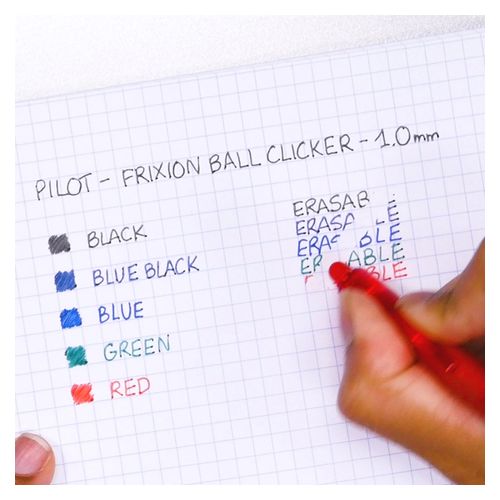 PILOT - FRIXION BALL CLICKER - 1.0mm
BLACK
BLUE BLACK
BLUE
GREEN
RED
ERASAB
ERASA LE
ERA BLE
ER ABLE
BLE